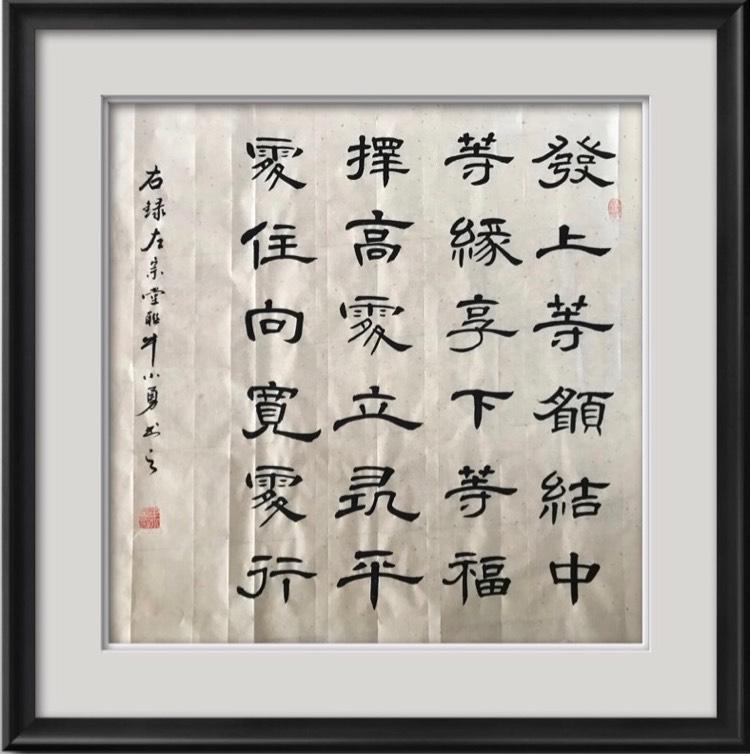 發上等願結中
等緣享下等福
擇高處立就平
處住向寬處行
右録左宗堂聯牛小勇书之